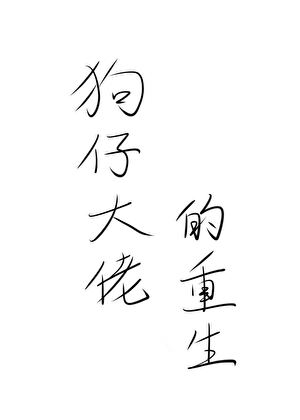 狗仔大佬
的重生